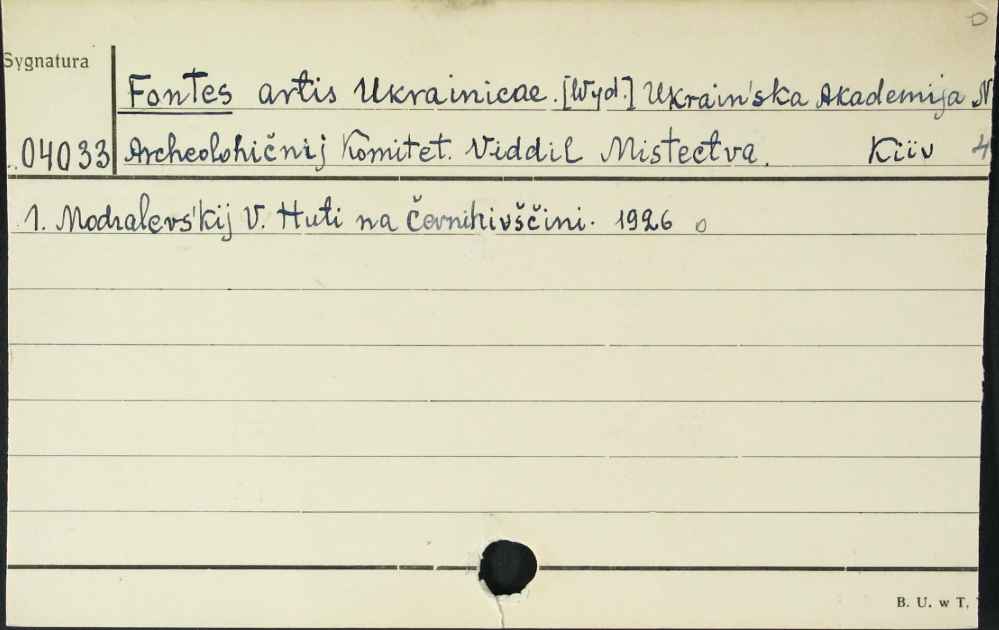 Sygnatura
Fontes artis Ukrainicae. [Wyd.] Ukrain'ska Akademija N
04033 Archeolohičnij Komitet. Viddil Mistectva. Kiiv 4
1. Modzalevs'kij V. Huti na Černihivščini. 1926
B. U. w T.